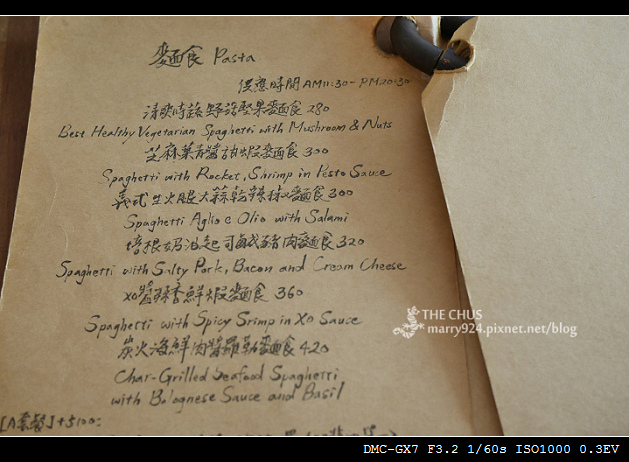 麵食 Pasta
供應時間 AM11:30 - PM20:30
清爽時蔬野菇堅果麵食 280
Best Healthy Vegetarian Spaghetti with Mushroom & Nuts
芝麻葉青醬甜蝦麵食 300
Spaghetti with Rocket, Shrimp in Pesto Sauce
義式生火腿大蒜乾辣椒麵食 300
Spaghetti Aglio e Olio with Salami
培根奶油起司鹹豬肉麵食 320
Spaghetti with Salty Pork, Bacon and Cream Cheese
XO醬辣香鮮蝦麵食 360
Spaghetti with Spicy Srimp in XO Sauce
炭火海鮮肉醬羅勒麵食 420
Char-Grilled Seafood Spaghetti
with Bolognese Sauce and Basil
[A套餐]+$100:
THE CHUS
marry924.pixnet.net/blog
DMC-GX7 F3.2 1/60s ISO1000 0.3EV